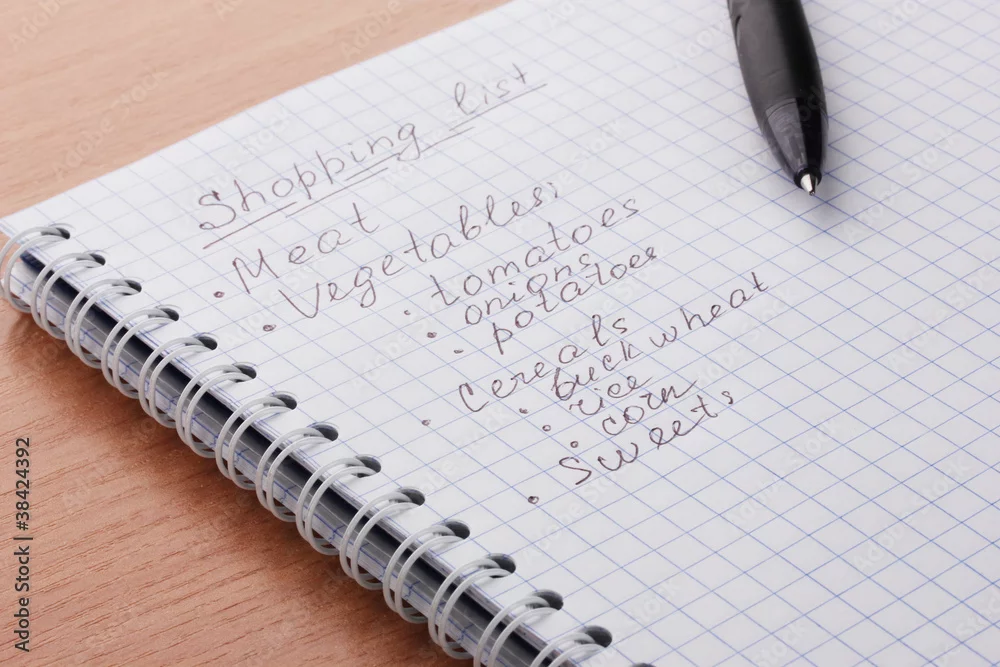 Shopping list
• Meat
• Vegetables:
• tomatoes
• onions
• potatoes
• Cereals
• buckwheat
• rice
• corn
• Sweets
Adobe Stock | #38424392